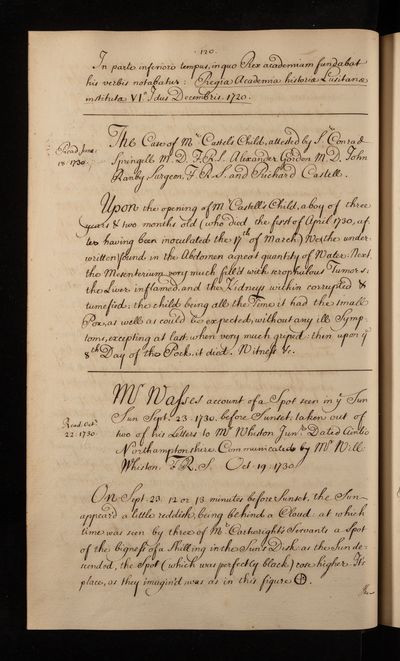 120.
In parte inferiori tempus, in quo Rex academiam fundabat
his verbis notabatur: Regia Academia historiæ Lusitanæ
instituta VI Idus Decembris. 1720.
The Case of Mr Castels Child, attested by Sr Conrad
Read, June
18 1730.
Springell M.D. F.R.S. Alexander Gordon M.D. John
Ranby, Surgeon, F.R.S. and Richard Castell.
Upon the opening of Mr Castell's Child, a boy of three
years & two months old (who died the first of April 1730, af-
ter having been inoculated the 17th of March) We the under
written found in the Abdomen a great quantity of Water. Next,
the Mesenterium very much fill'd with scrophulous Tumors:
the Liver inflamed, and the Kidneys within corrupted &
tumefied: the child being all the Time it had the small
Pox, as well as could be expected, without any ill Symp-
toms, excepting at last when very much griped: then upon ye
8th Day of the Pock, it died. Witness &c.
Mr Wasses account of a Spot seen in ye Sun
Read Octr
22. 1730.
Sun Sept. 23. 1730. before Sunset; taken out of
two of his Letters to Mr Whiston Junr. Dated
Northamptonshire. Communicated by Mr Will:
Whiston. F.R.S. Oct. 19. 1730.
On Sept. 23. 12 or 13 minutes before Sunset, the Sun
appear'd a little reddish, being behind a Cloud: at which
time was seen by three of Mr Cartwright's Servants a Spot
of the bigness of a Shilling in the Sun's Disk: as the Sun de-
scended, the Spot (which was perfectly black) rose higher. Its
place, as they imagin'd was as in this figure.